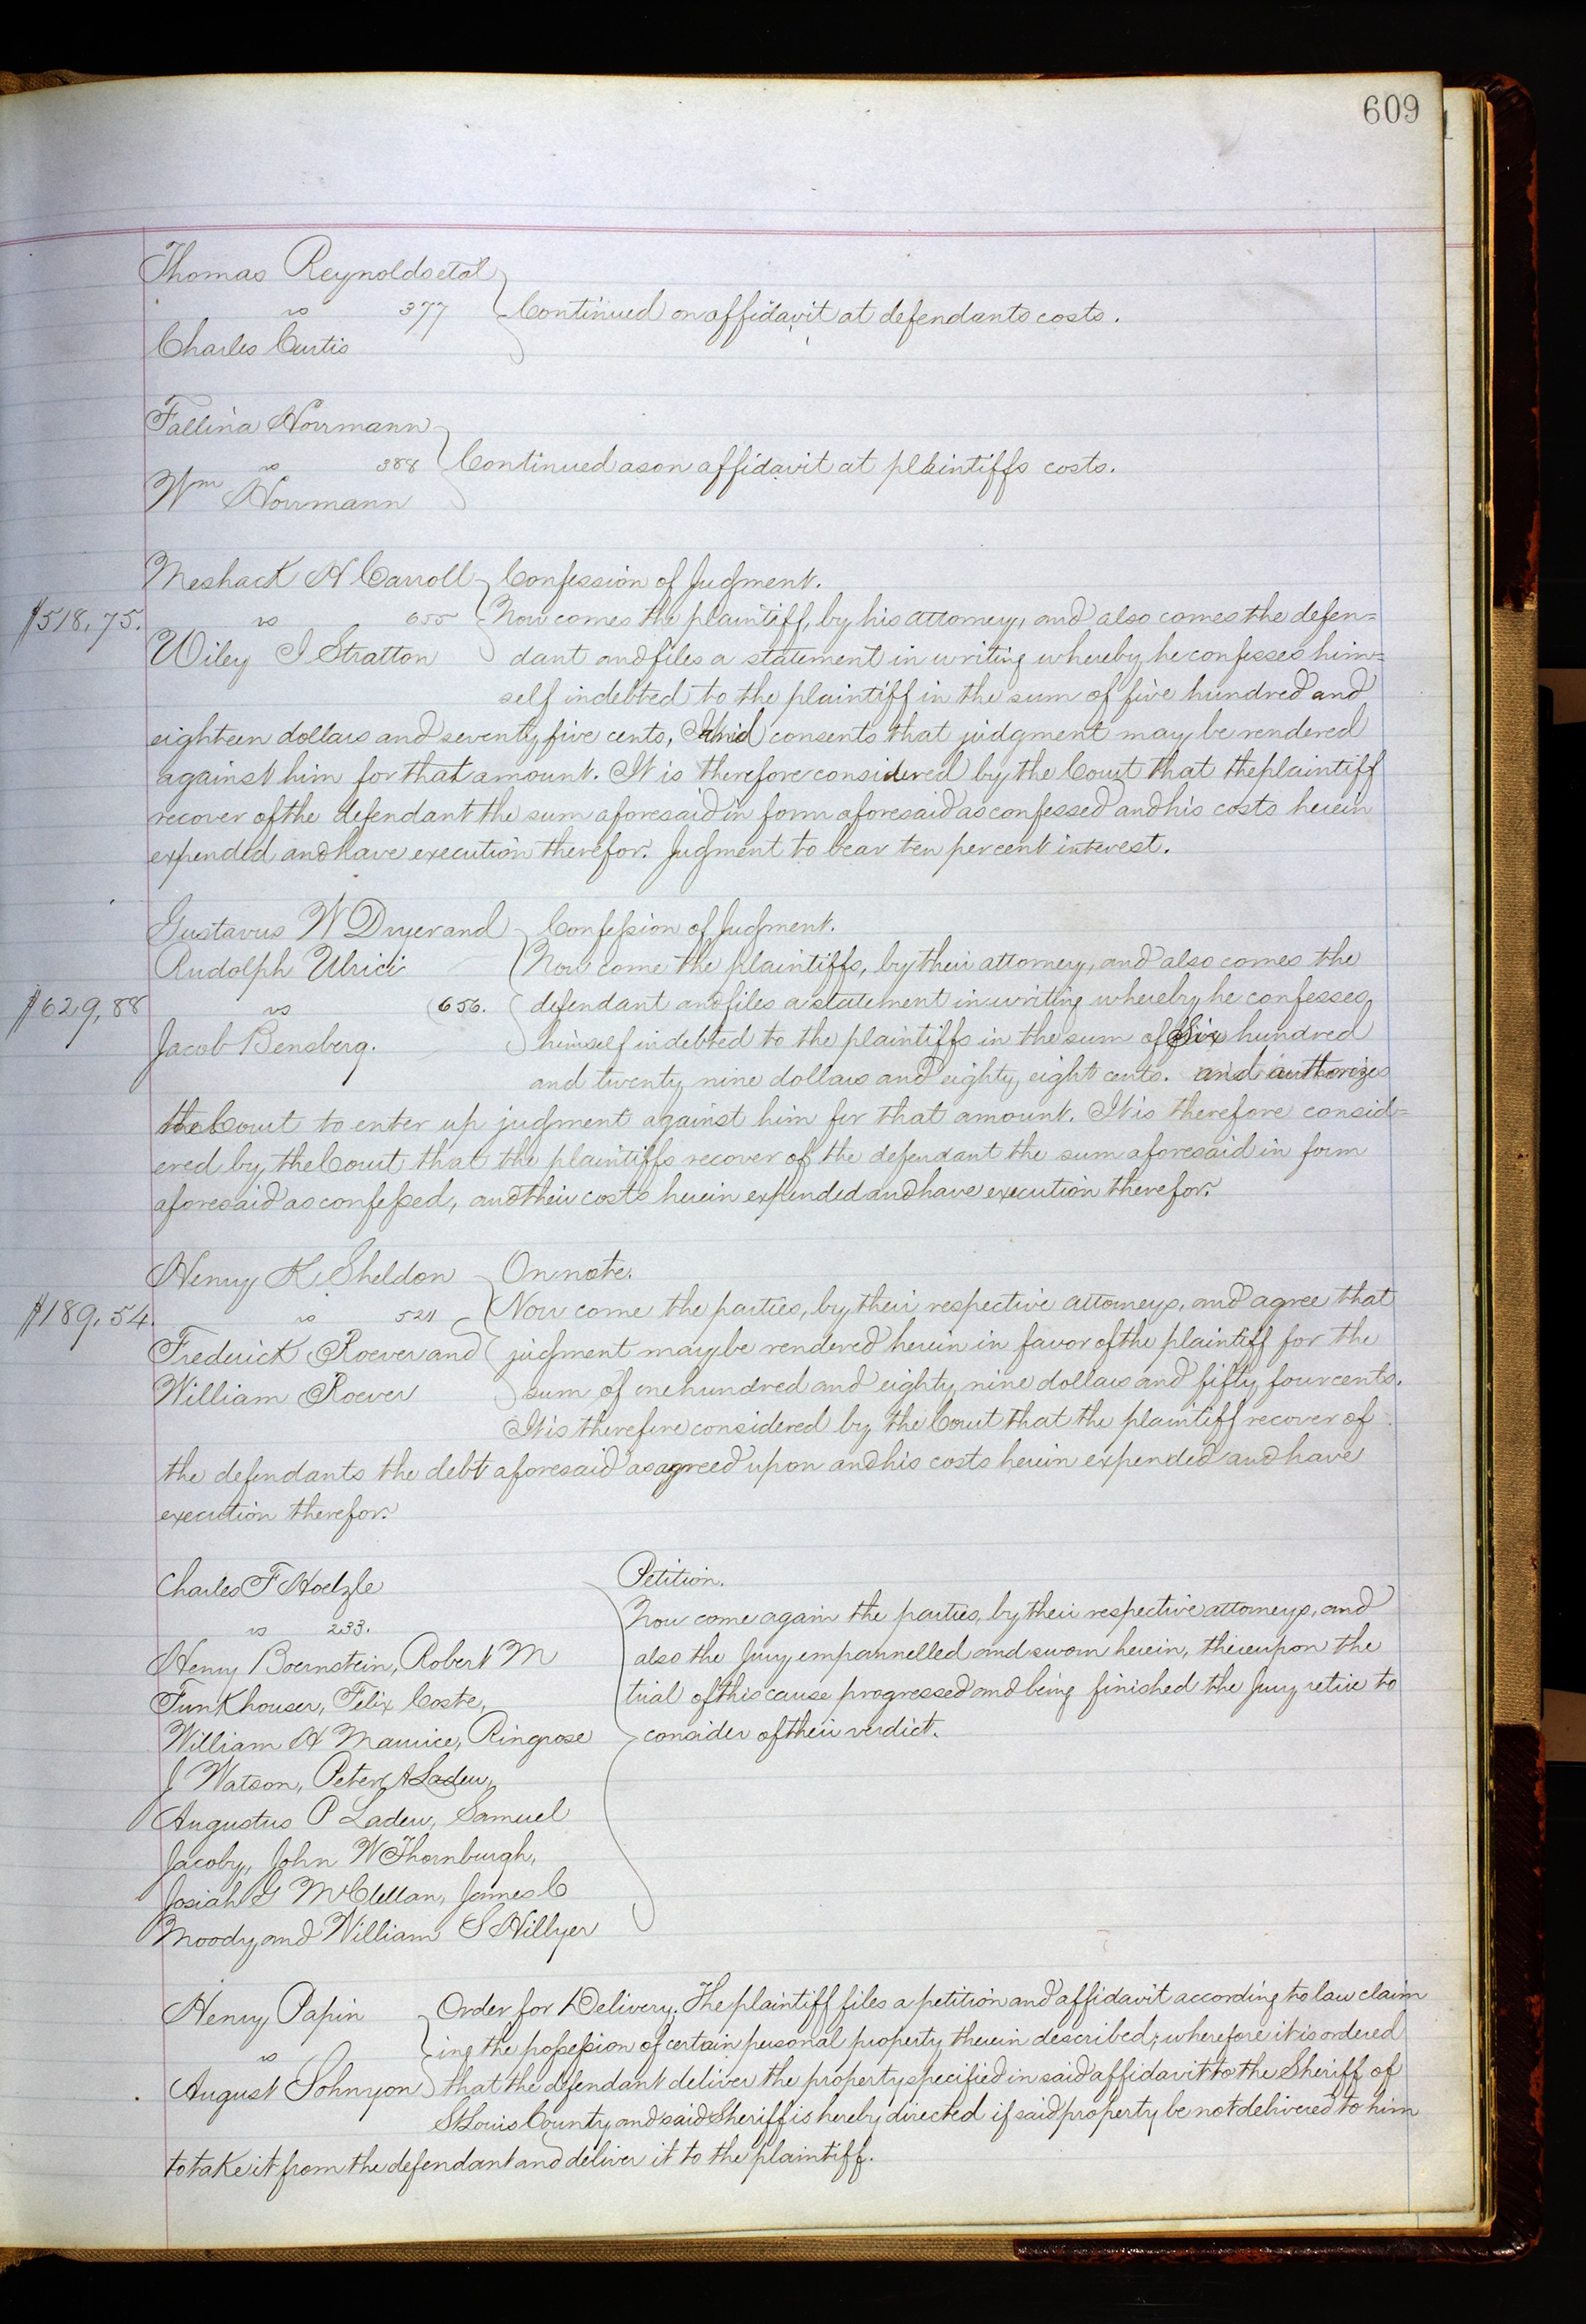 609
Thomas Reynolds et al
vs 377 Continued on affidavit at defendants costs.
Charles Curtis
Fallina Horrmann
vs 388 Continued as on affidavit at plaintiffs costs.
Wm Horrmann
Meshack H Carroll Confession of Judgment.
$518,75. vs 655 Now comes the plaintiff, by his attorney, and also comes the defen=
Wiley I Stratton dant and files a statement in writing whereby he confesses him=
self indebted to the plaintiff in the sum of five hundred and
eighteen dollars and seventy five cents, And consents that judgment may be rendered
against him for that amount. It is therefore considered by the Court that the plaintiff
recover of the defendant the sum aforesaid in form aforesaid as confessed and his costs herein
expended and have execution therefor. Judgment to bear ten per cent interest.
Gustavus W Dryer and Confession of Judgment.
Rudolph Ulrici Now come the plaintiffs, by their attorney, and also comes the
$629,88 vs 656. defendant and files a statement in writing whereby he confesses
Jacob Bensberg. himself indebted to the plaintiffs in the sum of Six hundred
and twenty nine dollars and eighty eight cents. and authorizes
the Court to enter up judgment against him for that amount. It is therefore consid=
ered by the Court that the plaintiffs recover of the defendant the sum aforesaid in form
aforesaid as confessed, and their costs herein expended and have execution therefor.
Henry K Sheldon On note.
$189,54. vs Now come the parties, by their respective attorneys, and agree that
Frederick Roever and judgment may be rendered herein in favor of the plaintiff for the
William Roever sum of one hundred and eighty nine dollars and fifty four cents.
It is therefore considered by the Court that the plaintiff recover of
the defendants the debt aforesaid as agreed upon and his costs herein expended and have
execution therefor.
Charles F Hoelzle Petition.
vs 233. Now come again the parties, by their respective attorneys, and
Henry Boernstein, Robert M also the Jury empannelled and sworn herein, thereupon the
Funkhouser, Felix Coste, trial of this cause progressed and being finished the Jury retire to
William H Maurice, Ringrose consider of their verdict.
J Watson, Peter A Ladew,
Augustus P Ladew, Samuel
Jacoby, John W Thornburgh,
Josiah G McClellan, James C
Moody and William S Hillyer
Henry Papin Order for Delivery. The plaintiff files a petition and affidavit according to law claim
vs ing the possession of certain personal property therein described; wherefore it is ordered
August Sohnyon that the defendant deliver the property specified in said affidavit to the Sheriff of
St Louis County and said Sheriff is hereby directed if said property be not delivered to him
to take it from the defendant and deliver it to the plaintiff.